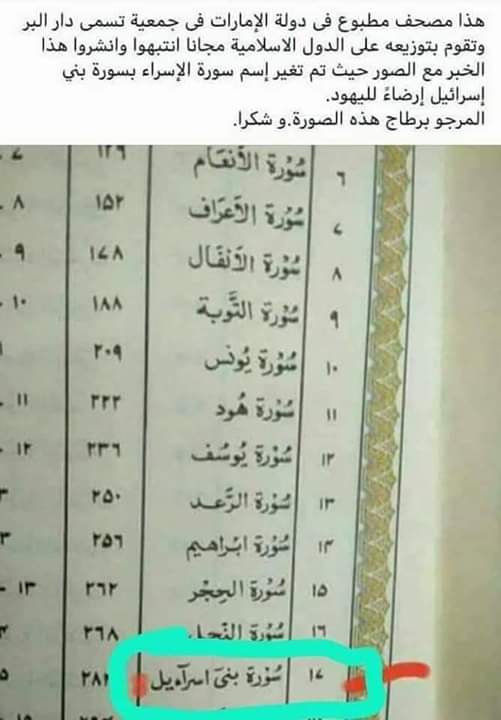 هذا مصحف مطبوع فى دولة الإمارات فى جمعية تسمى دار البر
وتقوم بتوزيعه على الدول الاسلامية مجانا انتبهوا وانشروا هذا
الخبر مع الصور حيث تم تغير إسم سورة الإسراء بسورة بني
إسرائيل إرضاءً لليهود.
المرجو برطاج هذه الصورة.و شكرا.
٦ سُوْرَة الأَنعَام ١٢٩
٧ سُوْرَة الأَعرَاف ١٥٢ ٨
٨ سُوْرَة الأَنفَال ١٧٨ ٩
٩ سُوْرَة التَّوبَة ١٨٨ ١٠
١٠ سُوْرَة يُونس ٢٠٩
١١ سُوْرَة هُود ٢٢٢ ١١
١٢ سُوْرَة يُوسُف ٢٣٦ ١٢
١٣ سُوْرَة الرَّعد ٢٥٠
١٤ سُوْرَة ابْراهِيم ٢٥٦
١٥ سُوْرَة الحِجْر ٢٦٢ ١٣
١٦ سُوْرَة النَّحل ٢٦٨
١٧ سُوْرَة بَنِىٓ اسرآءيل